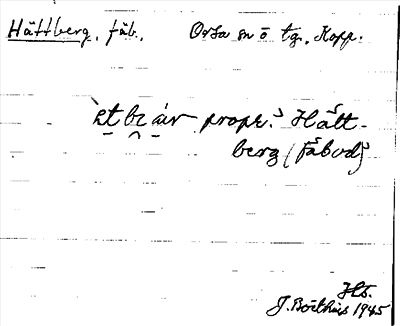 Hättberg, fäb. Orsa sn ö tg., Kopp.
propr. Hätt-
berg (fäbod)
Hs.
J. Boëthius 1945